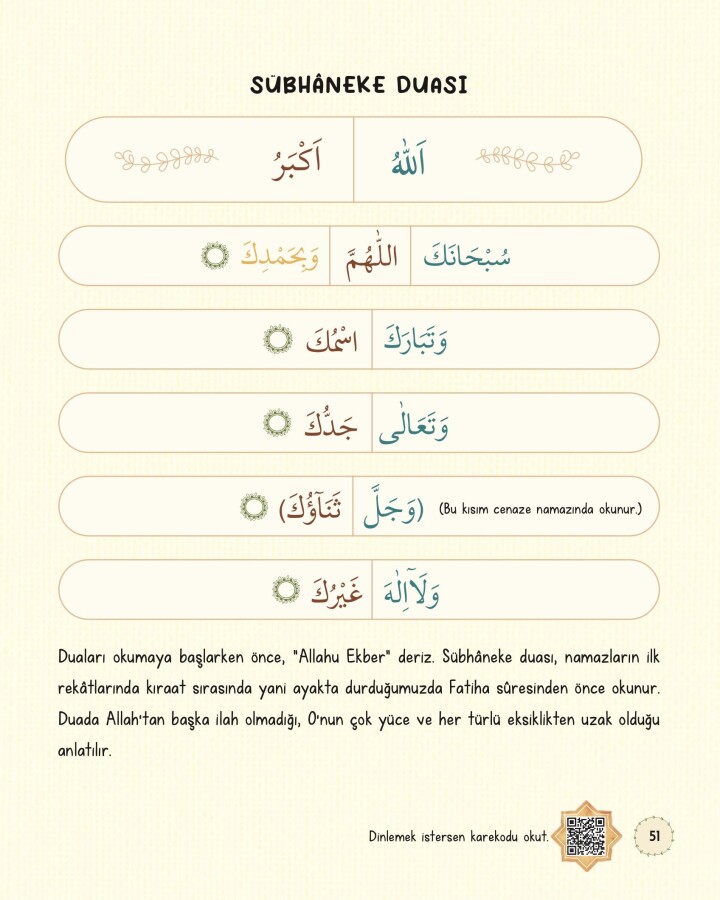 SÜBHÂNEKE DUASI
اَللّٰهُ اَكْبَرُ
سُبْحَانَكَ اللّٰهُمَّ وَبِحَمْدِكَ
وَتَبَارَكَ اسْمُكَ
وَتَعَالٰى جَدُّكَ
(Bu kısım cenaze namazında okunur.) (وَجَلَّ ثَنَآؤُكَ)
وَلَآاِلٰهَ غَيْرُكَ
Duaları okumaya başlarken önce, "Allahu Ekber" deriz. Sübhâneke duası, namazların ilk
rekâtlarında kıraat sırasında yani ayakta durduğumuzda Fatiha sûresinden önce okunur.
Duada Allah'tan başka ilah olmadığı, O'nun çok yüce ve her türlü eksiklikten uzak olduğu
anlatılır.
Dinlemek istersen karekodu okut.
51